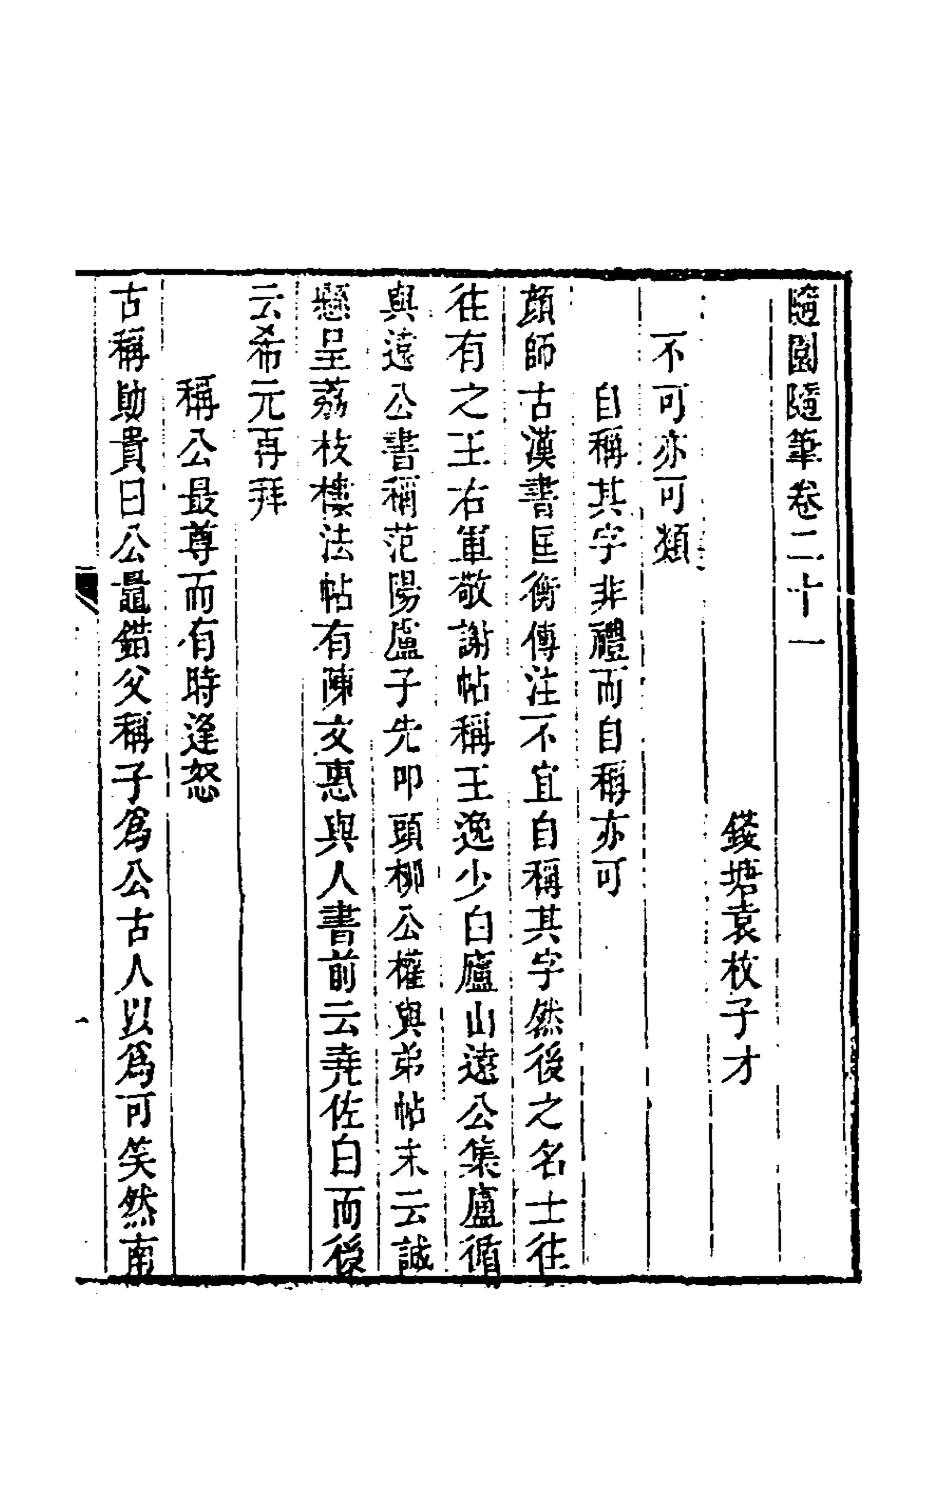 隨園隨筆卷二十一
錢塘袁枚子才
不可亦可類
自稱其字非禮而自稱亦可
顏師古漢書匡衡傳注不宜自稱其字然後之名士往
往有之王右軍敬謝帖稱王逸少白廬山遠公集盧循
與遠公書稱范陽盧子先叩頭柳公權與弟帖末云誠
懸呈荔枝樓法帖有陳文惠與人書前云堯佐白而後
云希元再拜
稱公最尊而有時逢怒
古稱助貴曰公鼂錯父稱子爲公古人以爲可笑然南